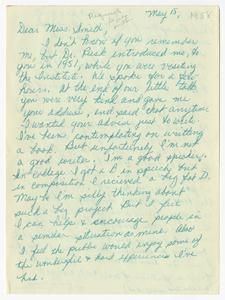 May 15, 1958
Dear Miss Smith,
I don't know if you remember
me, but Dr. Rusk introduced me to
you in 1951, while you were visiting
the Institute. We spoke for a few
hours. At the end of our little talk
you were very kind and gave me
your address, and said that anytime
I wanted your advice just to write.
I've been contemplating on writing
a book. But unfortunately I'm not
a good writer. I'm a good speaker.
In college I got a B in speech, but
in composition I received a big fat D.
Maybe I'm silly thinking about
such a big project. But I feel
I can help & encourage people in
a similar situation as mine. Also
I feel the public would enjoy some of
the wonderful & hard experiences I've
had.